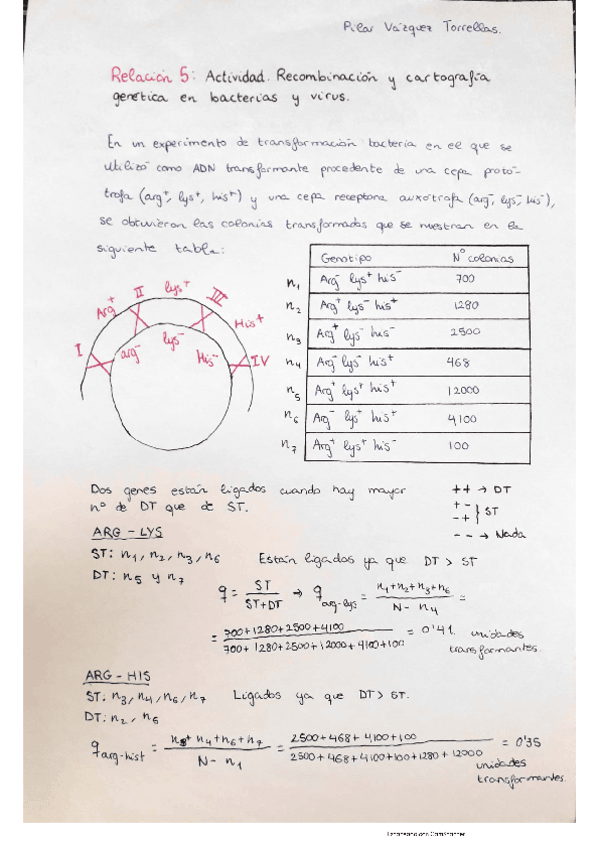 Pilar Vázquez Torrellas.
Relación 5: Actividad. Recombinación y cartografía
genética en bacterias y virus.
En un experimento de transformación bacteria en el que se
utilizó como ADN transformante procedente de una cepa protó-
trofa (arg+, lys+, his+) y una cepa receptora auxótrofa (arg-, lys-, his-),
se obtuvieron las colonias transformadas que se muestran en la
siguiente tabla:
Genotipo Nº colonias
n1 Arg- lys+ his- 700
n2 Arg+ lys- his+ 1280
n3 Arg+ lys- his- 2500
n4 Arg- lys- his+ 468
n5 Arg+ lys+ his+ 12000
n6 Arg- lys+ his+ 4100
n7 Arg+ lys+ his- 100
I Arg+ II lys+ III His+ IV
arg- lys- His-
Dos genes están ligados cuando hay mayor
nº de DT que de ST.
++ → DT
+ -
- + } ST
- - → Nada
ARG - LYS
ST: n1, n2, n3, n6 Están ligados ya que DT > ST
DT: n5 y n7
q = ST / ST+DT → q arg-lys = n1+n2+n3+n6 / N - n4 =
= 700+1280+2500+4100 / 700+1280+2500+12000+4100+100 = 0'41 unidades
transformantes.
ARG - HIS
ST: n3, n4, n6, n7 Ligados ya que DT > ST.
DT: n2, n5
q arg-hist = n3+n4+n6+n7 / N - n1 = 2500+468+4100+100 / 2500+468+4100+100+1280+12000 = 0'35
unidades
transformantes.
Escaneado con CamScanner